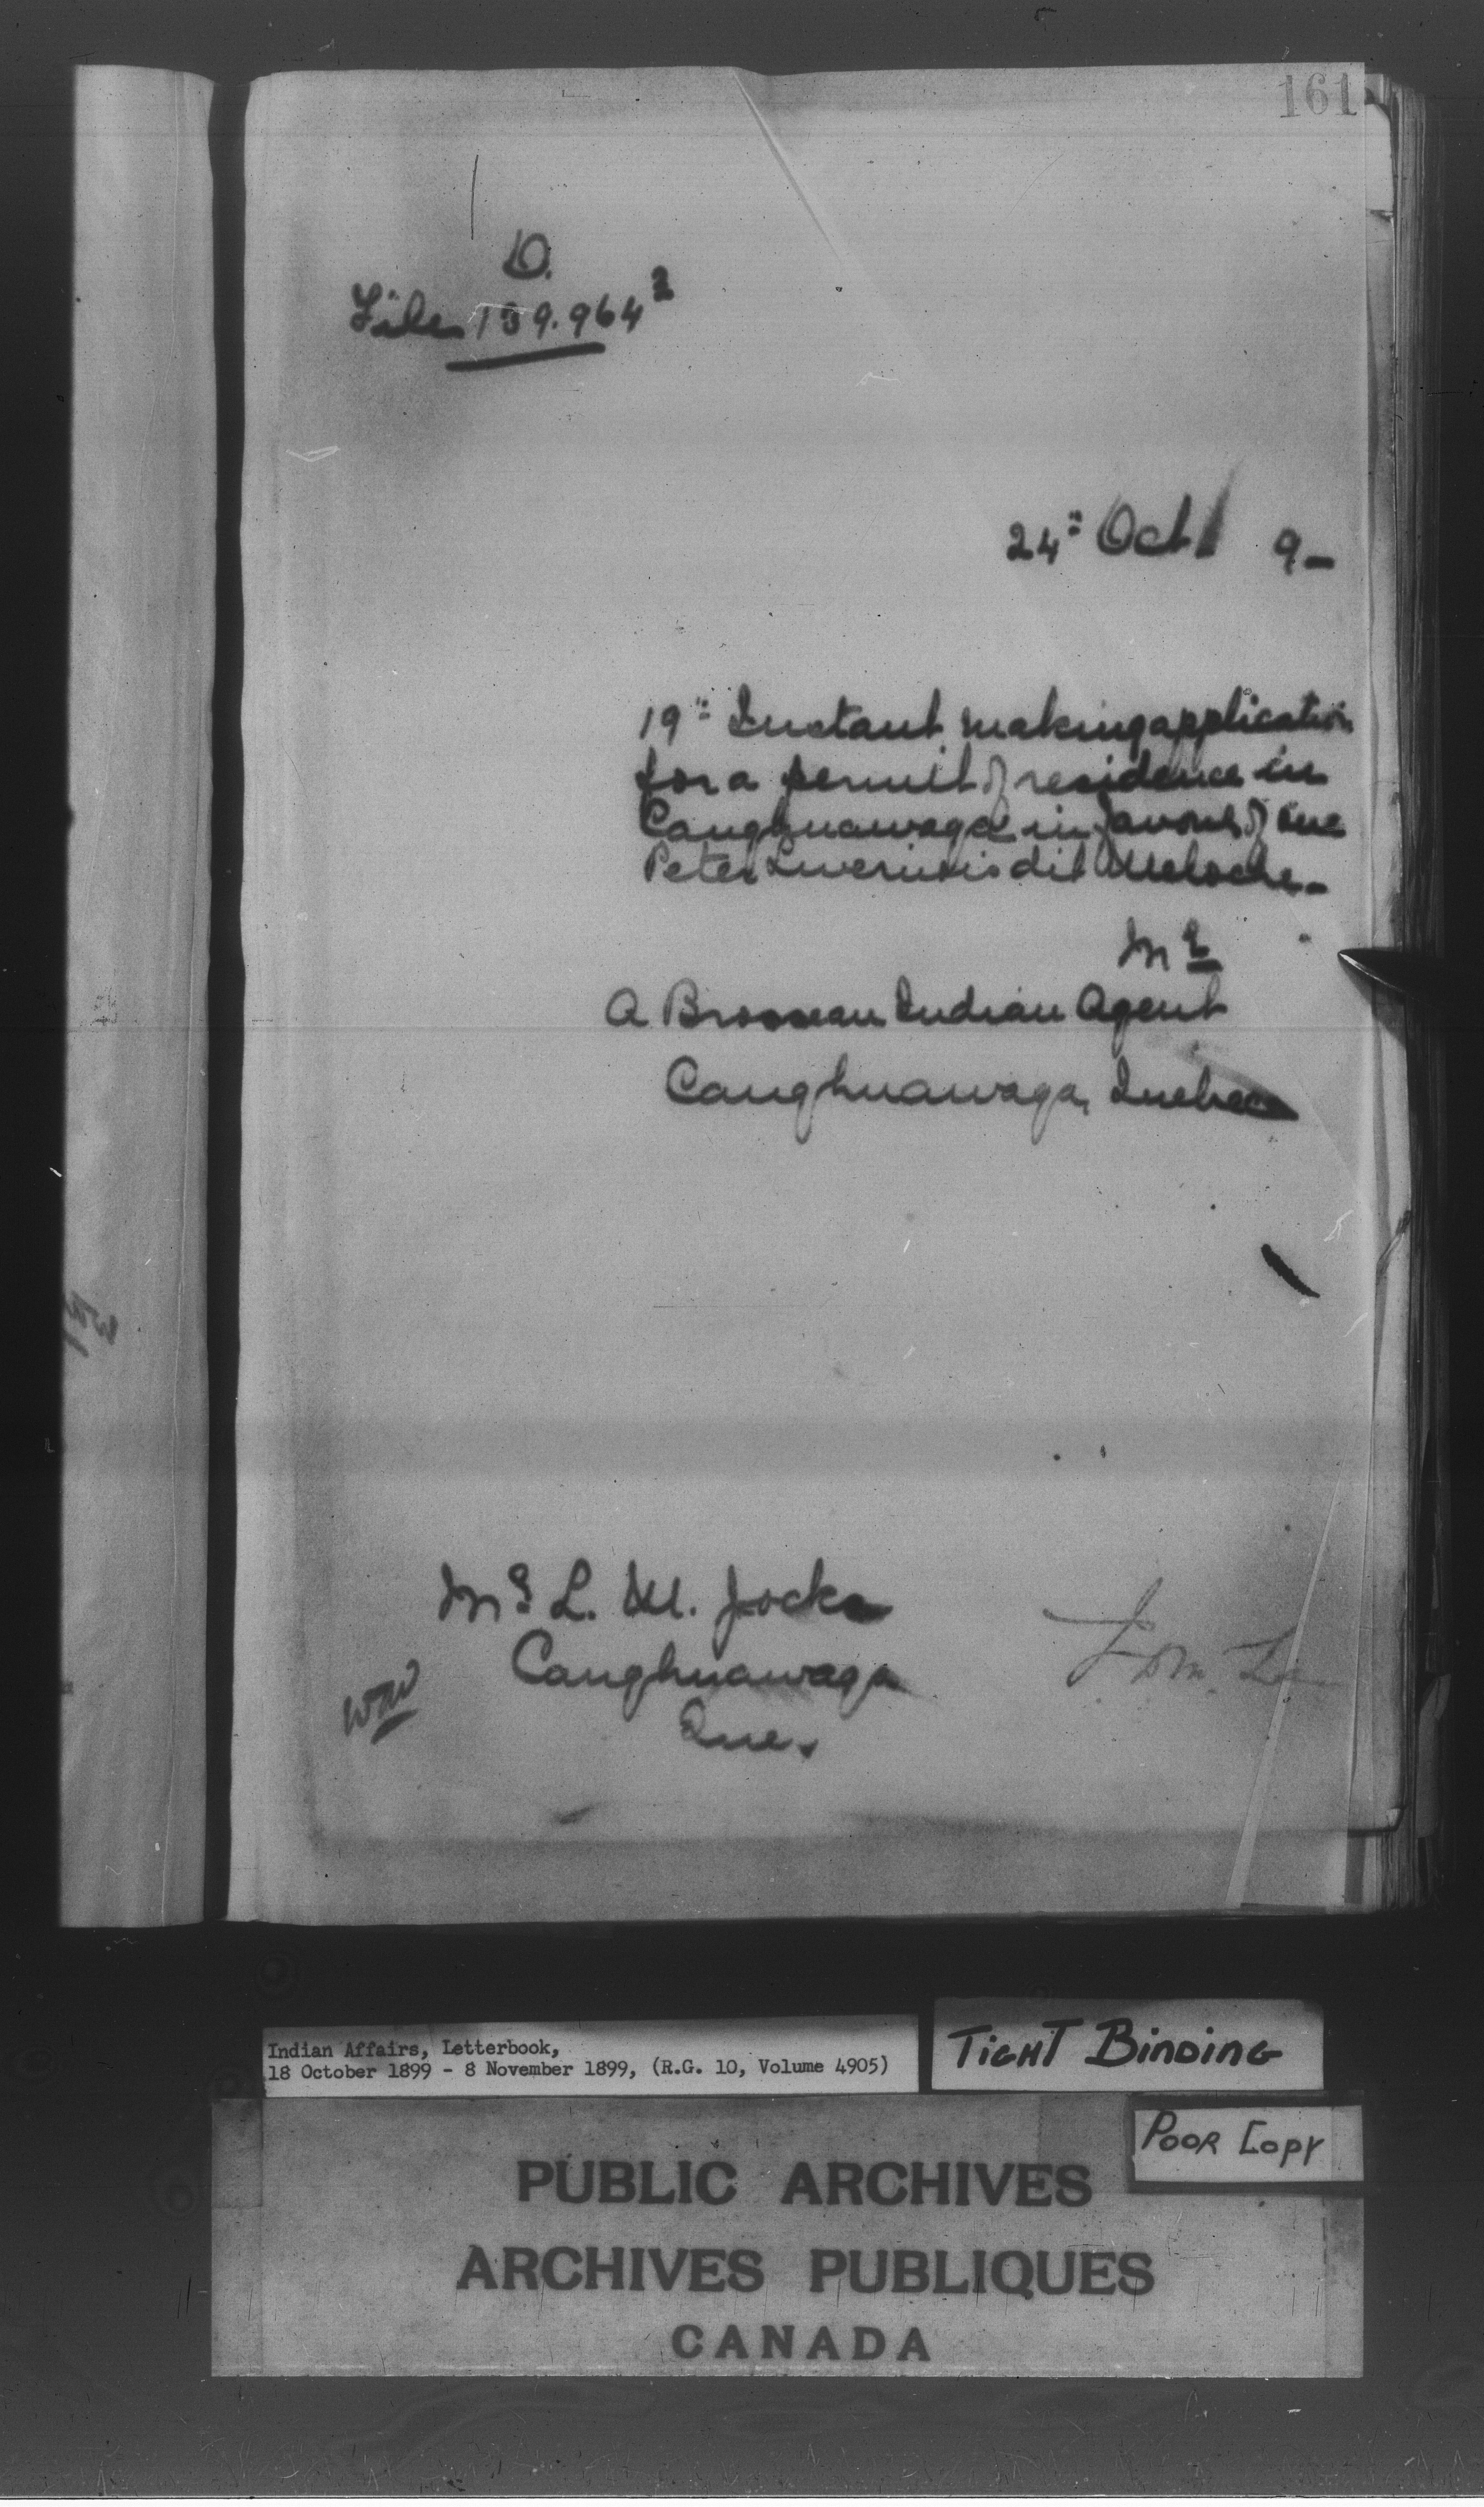 161
D.
File 139.964³
24" Oct 9-
19" Instant making application
for a permit of residence in
Caughnawaga in favour of one
Peter dit Meloche.
Mr
A Brosseau Indian Agent
Caughnawaga, Quebec
Mr L. M. Jocks
Caughnawaga
Que.
Indian Affairs, Letterbook,
18 October 1899 - 8 November 1899, (R.G. 10, Volume 4905)
TIGHT BINDING
POOR COPY
PUBLIC ARCHIVES
ARCHIVES PUBLIQUES
CANADA